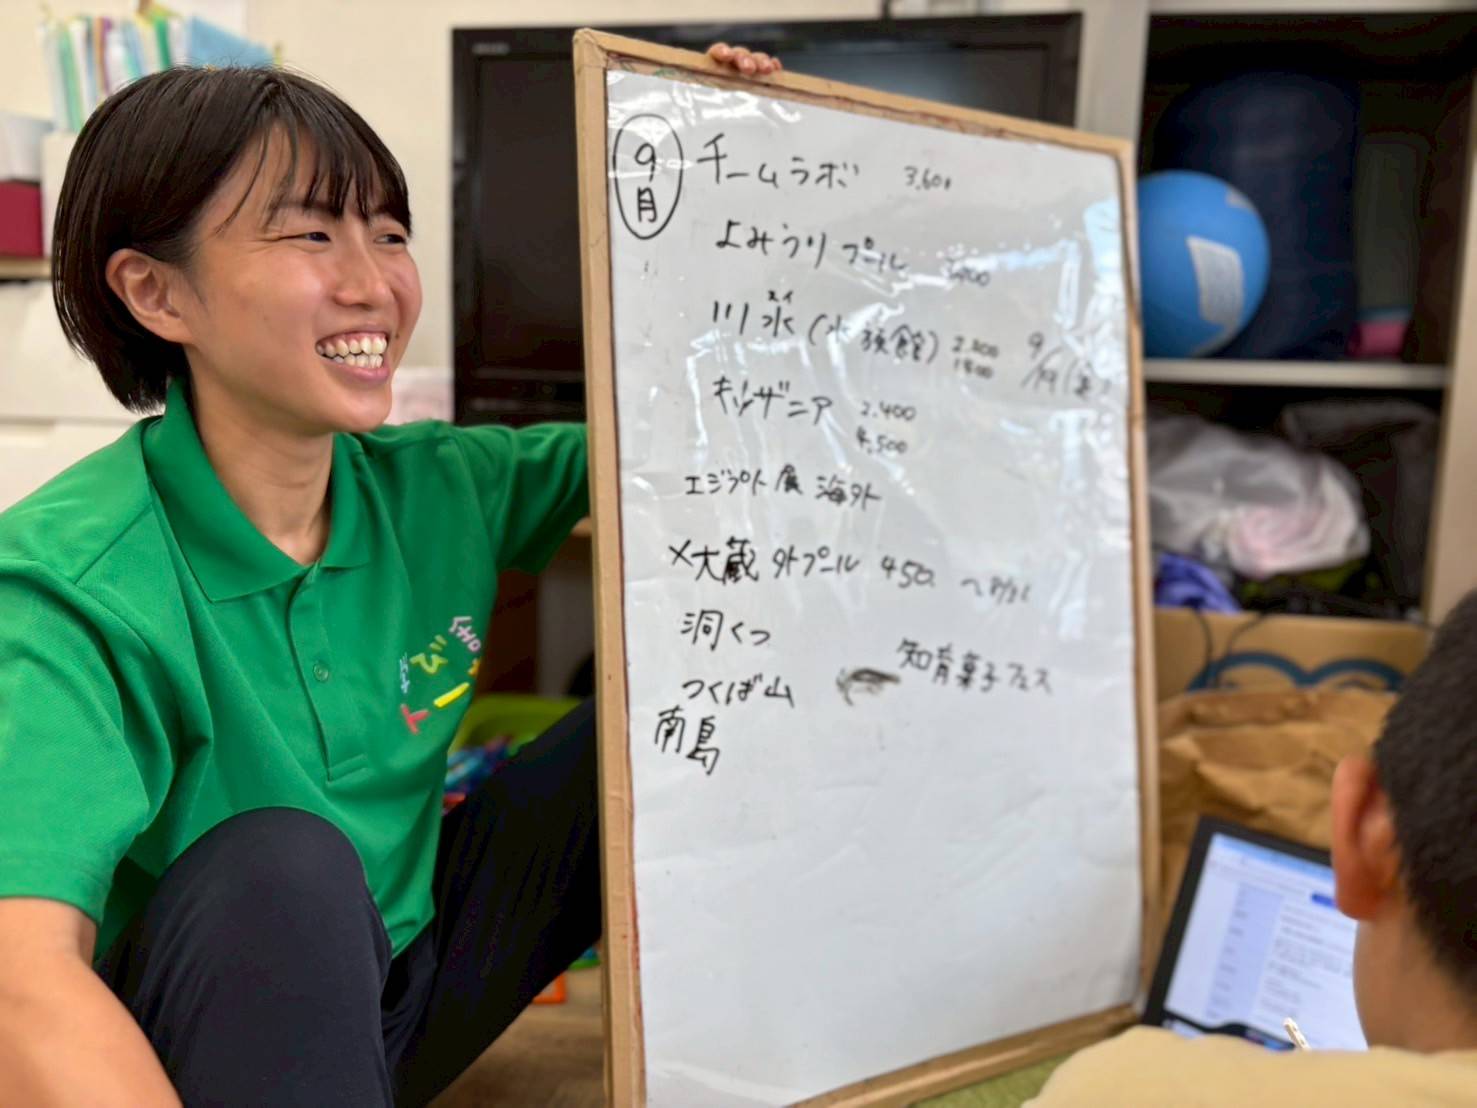 9月
チームラボ 3,600
よみうりプール
スイ
川水(水族館) 9/19(金)
1800
キッザニア 2,400
4,500
エジプト展 海外
×大蔵 外プール 450
洞くつ
知育菓子フェス
つくば山
南島
学び舎